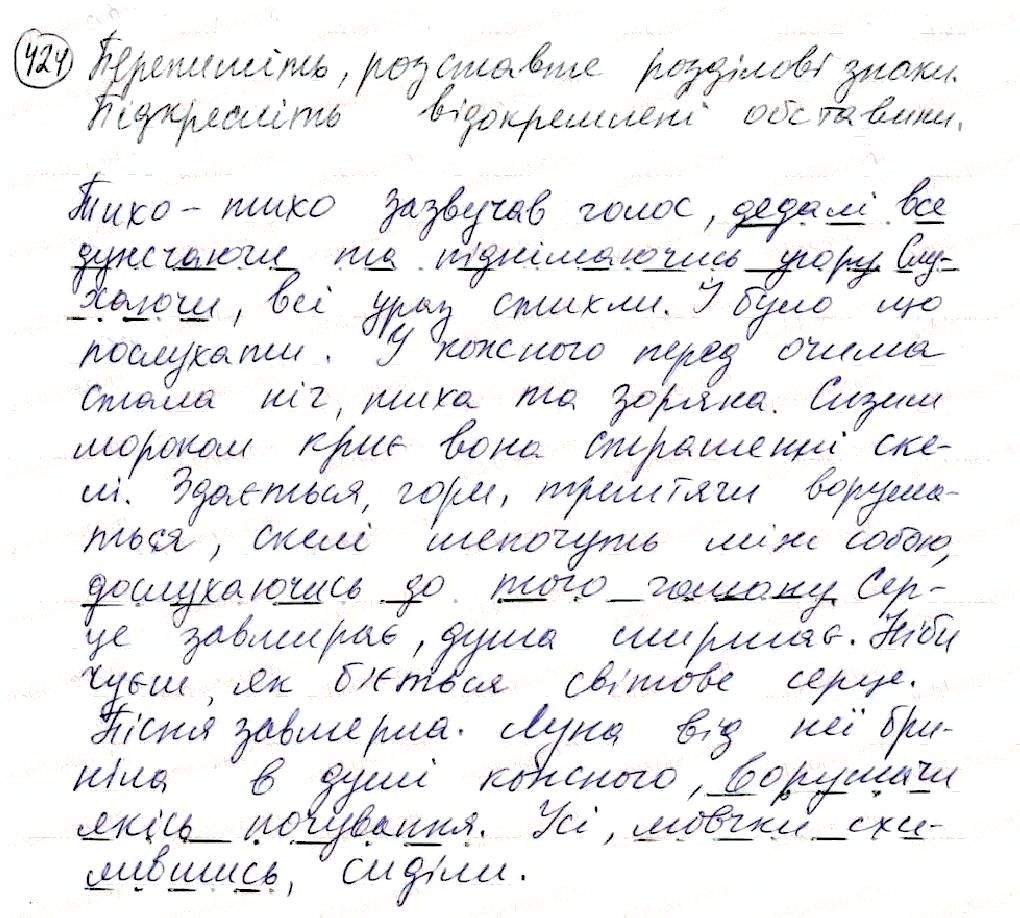 424 Перепишіть, розставте розділові знаки.
Підкресліть відокремлені обставини.
Тихо-тихо зазвучав голос, дедалі все
дужчаючи та піднімаючись угору. Слу-
хаючи, всі ураз стихли. І було що
послухати. У кожного перед очима
стала ніч, тиха та зоряна. Сизим
мороком криє вона страшенні ске-
лі. Здається, гори, тремтячи ворушa-
ться, скелі шепочуть між собою,
дослухаючись до того гомону. Сер-
це завмирає, душа ширшає. Ніби
чуєш, як б'ється світове серце.
Пісня завмерла. Луна від неї бри-
ніла в душі кожного, ворушачи
якісь почування. Усі, мовчки схи-
лившись, сиділи.